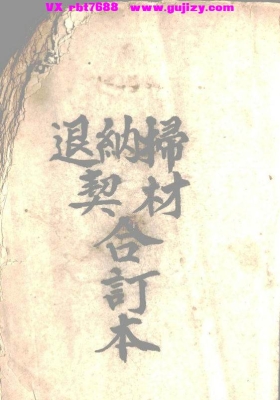 VX rbt7688   www.gujizy.com
掃納退
材契
合訂本